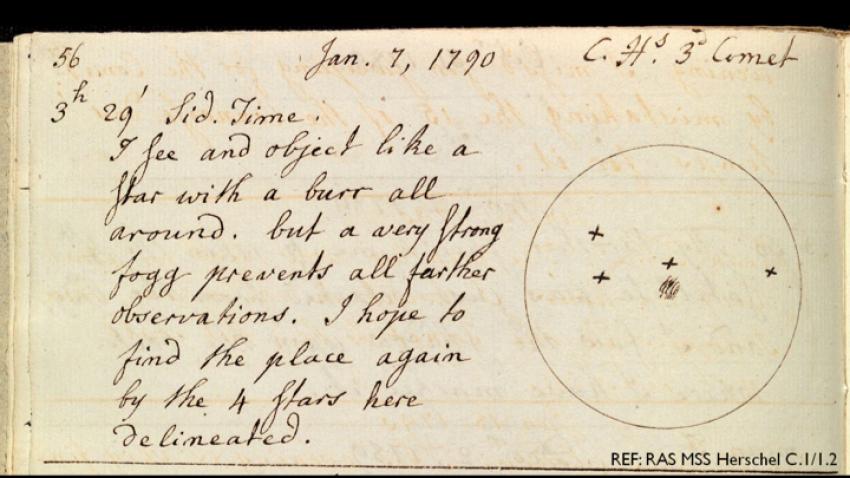 56 Jan. 7, 1790 C. Hs. 3d Comet
3h 29' Sid. Time.
I see and object like a
star with a burr all
around. but a very strong
fogg prevents all farther
observations. I hope to
find the place again
by the 4 stars here
delineated.
REF: RAS MSS Herschel C.1/1.2